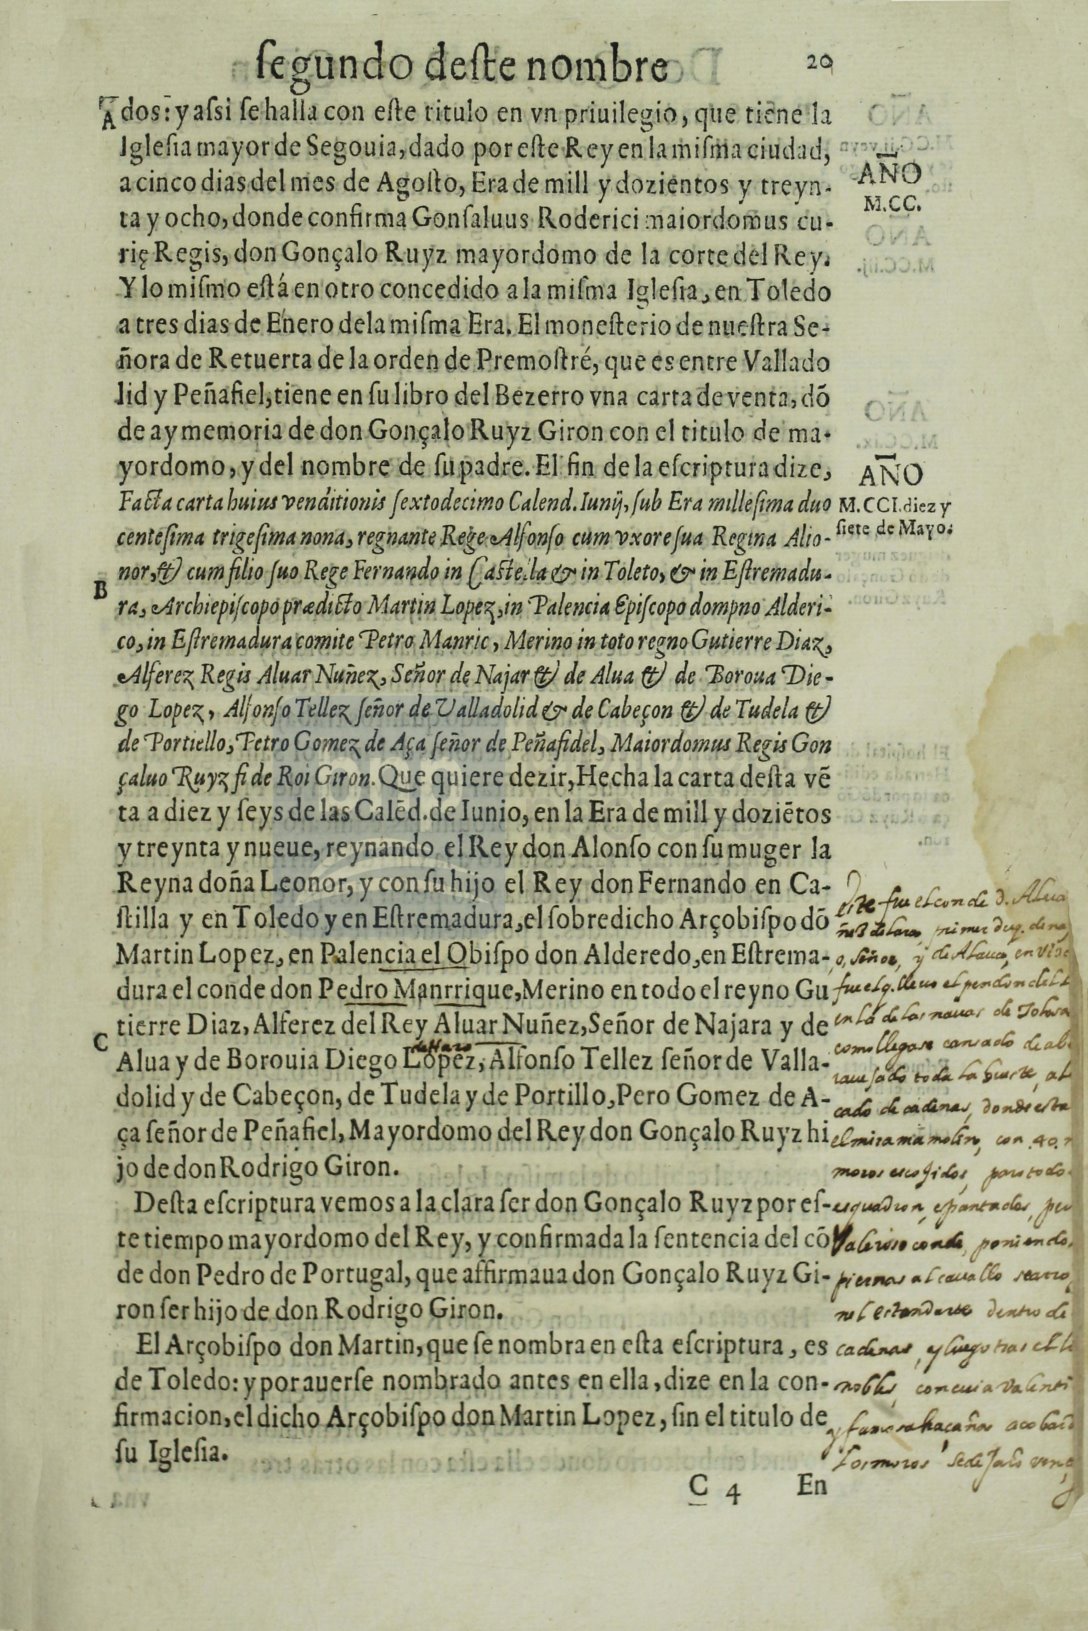 segundo deste nombre 20
A dos: y assi se halla con este titulo en vn priuilegio, que tiene la
Iglesia mayor de Segouia, dado por este Rey en la misma ciudad,
a cinco dias del mes de Agosto, Era de mill y dozientos y treyn-
ta y ocho, donde confirma Gonsaluus Roderici maiordomus cu-
rię Regis, don Gonçalo Ruyz mayordomo de la corte del Rey.
Y lo mismo está en otro concedido a la misma Iglesia, en Toledo
a tres dias de Enero dela misma Era. El monesterio de nuestra Se-
ñora de Retuerta de la orden de Premostré, que es entre Vallado
lid y Peñafiel, tiene en su libro del Bezerro vna carta de venta, dõ
de ay memoria de don Gonçalo Ruyz Giron con el titulo de ma-
yordomo, y del nombre de su padre. El fin de la escriptura dize,
Facta carta huius venditionis sextodecimo Calend. Iunij, sub Era millesima duo
centesima trigesima nona, regnante Rege Alfonso cum vxore sua Regina Alio-
nor, & cum filio suo Rege Fernando in Castella & in Toleto, & in Estremadu-
B ra, Archiepiscopo prædicto Martin Lopez, in Palencia Episcopo dompno Alderi-
co, in Estremadura comite Petro Manric, Merino in toto regno Gutierre Diaz,
Alferez Regis Aluar Nuñez, Señor de Najar & de Alua & de Boroua Die-
go Lopez, Alfonso Tellez señor de Valladolid & de Cabeçon & de Tudela &
de Portiello, Petro Gomez de Aça señor de Peñafidel, Maiordomus Regis Gon
çaluo Ruyz fi de Roi Giron. Que quiere dezir, Hecha la carta desta vẽ
ta a diez y seys de las Calẽd. de Iunio, en la Era de mill y doziẽtos
y treynta y nueue, reynando el Rey don Alonso con su muger la
Reyna doña Leonor, y con su hijo el Rey don Fernando en Ca-
stilla y en Toledo y en Estremadura, el sobredicho Arçobispo dõ
Martin Lopez, en Palencia el Obispo don Alderedo, en Estrema-
dura el conde don Pedro Manrrique, Merino en todo el reyno Gu
C tierre Diaz, Alferez del Rey Aluar Nuñez, Señor de Najara y de
de Haro
Alua y de Borouia Diego Lopez, Alfonso Tellez señor de Valla-
dolid y de Cabeçon, de Tudela y de Portillo, Pero Gomez de A-
ça señor de Peñafiel, Mayordomo del Rey don Gonçalo Ruyz hi
jo de don Rodrigo Giron.
Desta escriptura vemos a la clara ser don Gonçalo Ruyz por es-
te tiempo mayordomo del Rey, y confirmada la sentencia del cõ
de don Pedro de Portugal, que affirmaua don Gonçalo Ruyz Gi-
ron ser hijo de don Rodrigo Giron.
El Arçobispo don Martin, que se nombra en esta escriptura, es
de Toledo: y por auerse nombrado antes en ella, dize en la con-
firmacion, el dicho Arçobispo don Martin Lopez, sin el titulo de
su Iglesia.
C 4 En
AÑO
M.CC.
AÑO
M.CCI. diez y
siete de Mayo.
este fue el conde d. Alua
ñez de lara, primer
señor, y de Alaua, en
fue el q. lleuo el pendon del
en la de las nauas de Tolosa
como llegase cansado de
toda la hueste,
cado de cadenas, donde esta
el miramamolin, con 40.
moros escojidos,
esquadron, espantados,
valeroso conde, poniendo
piernas al cauallo
el estandarte dentro de
cadenas, y luego tras el
nobles, con cuia valenti
y famosa haçaña
los moros